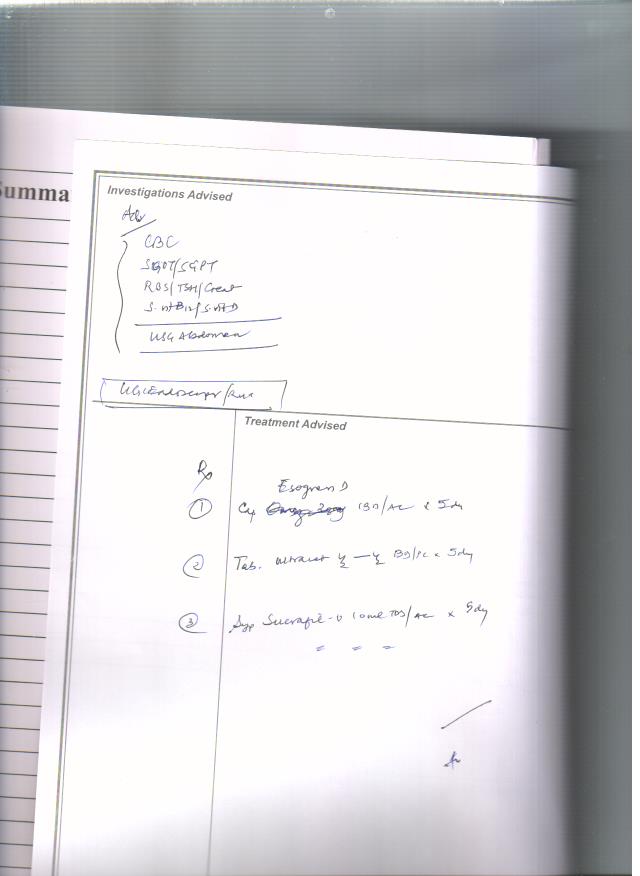 Summa
Investigations Advised
Adv
CBC
SGOT/SGPT
RBS/TSH/Creat
S.vitB12/S.vitD
USG Abdomen
UGI Endoscopy/
Treatment Advised
Rx
Esogran D
① Cap BD/AC x 5dy
② Tab. Ultracet ½ — ½ BD/PC x 5dy
③ Syp Sucrafil-O 10ml TDS/AC x 5dy